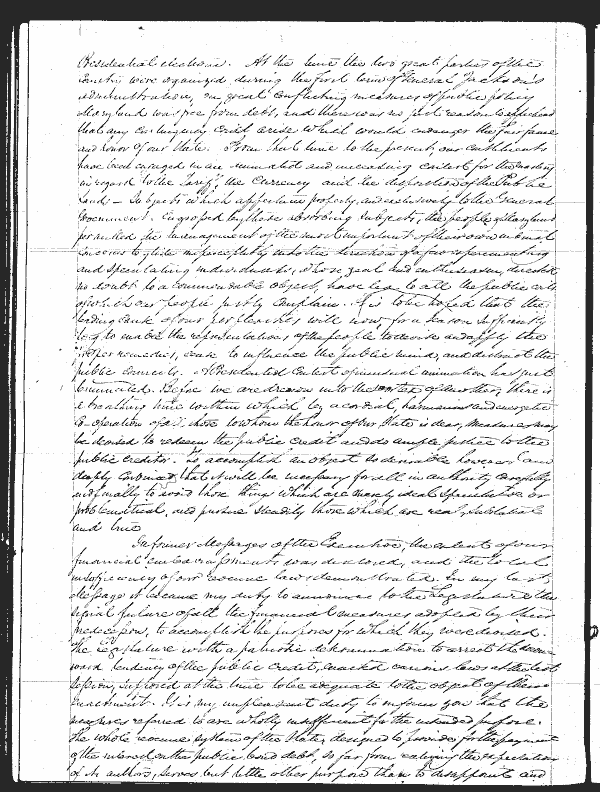 Presidential elections. At the time the two great parties of the
Country were organized during the first term of General Jackson's
administration, on great conflicting measures of public policy
Maryland was free from debt, and there was no just reason to apprehend
that any contingency could arise which would endanger the fair fame
and honor of our State. From that time to the present, our citizens
have been engaged in an animated and unceasing contest for the
in regard to the Tariff, the Currency and the disposition of the Public
Lands — Subjects which appertain properly, and exclusively to the General
Government. Engrossed by these absorbing subjects, the people of Maryland
permitted the management of the most important of their own internal
concerns to glide imperceptibly into the direction of a few experimenting
and speculating individuals, whose zeal and enthusiasm, directed
no doubt to a commendable object, have led to all the public evils
of which our people justly complain. It is to be hoped that the
leading cause of our perplexities will now for a season sufficiently
to enable the representatives of the people to devise and apply the
proper remedies, cease to influence the public mind, and distract the
public councils. A Presidential Contest of unusual animation has just
terminated. Before we are drawn into the vortex of another, there is
a breathing time within which by a cordial, harmonious and energetic
Co-operation of all those to whom the honor of the State is dear, measures may
be devised to redeem the public credit and do ample justice to the
public creditor. To accomplish an object so desirable however and
deeply it will be necessary for all in authority carefully
and finally to avoid those things which are merely ideal speculative or
problematical, and pursue steadily those which are real, substantial
and true
In former Messages of the Executive, the extent of our
financial embarrassments was disclosed, and the total
insufficiency of our revenue laws demonstrated. In my last
Message it became my duty to announce to the Legislature the
signal failure of all the financial measures adopted by their
predecessors, to accomplish the purposes for which they were devised.
The Legislature with a patriotic determination to arrest the down-
ward tendency of the public credit, enacted various laws at the last
session, supposed at the time to be adequate to the object of their
enactment. It is my unpleasant duty to inform you that the
measures referred to are wholly insufficient for the intended purpose.
The whole revenue system of the State, designed to provide for the payment
of the interest on the public debt, so far from realizing the expectation
of its authors, serves but little other purpose than to disappoint and